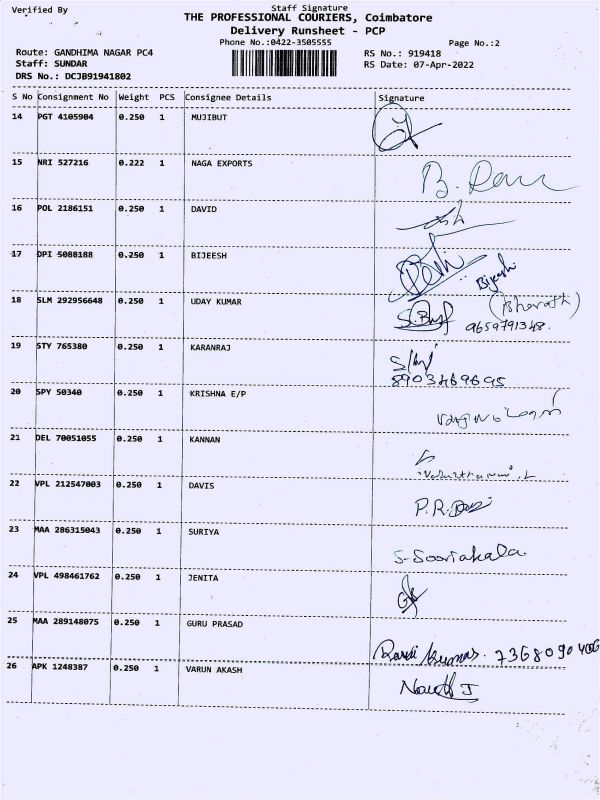 Verified By
Staff Signature
THE PROFESSIONAL COURIERS, Coimbatore
Delivery Runsheet - PCP
Phone No.:0422-3505555
Page No.:2
Route: GANDHIMA NAGAR PC4
RS No.: 919418
Staff: SUNDAR
RS Date: 07-Apr-2022
DRS No.: DCJB91941802
S No Consignment No Weight PCS Consignee Details Signature
14 PGT 4105904 0.250 1 MUJIBUT
15 NRI 527216 0.222 1 NAGA EXPORTS
16 POL 2186151 0.250 1 DAVID
17 DPI 5088188 0.250 1 BIJEESH
Bijeesh
18 SLM 292956648 0.250 1 UDAY KUMAR
(Bharath)
9659791348.
19 STY 765380 0.250 1 KARANRAJ
8903469695
20 SPY 50340 0.250 1 KRISHNA E/P
21 DEL 70051055 0.250 1 KANNAN
22 VPL 212547003 0.250 1 DAVIS
P.R.
23 MAA 286315043 0.250 1 SURIYA
S-Sooriakala.
24 VPL 498461762 0.250 1 JENITA
25 MAA 289148075 0.250 1 GURU PRASAD
Kumar. 7368090406
26 APK 1248387 0.250 1 VARUN AKASH